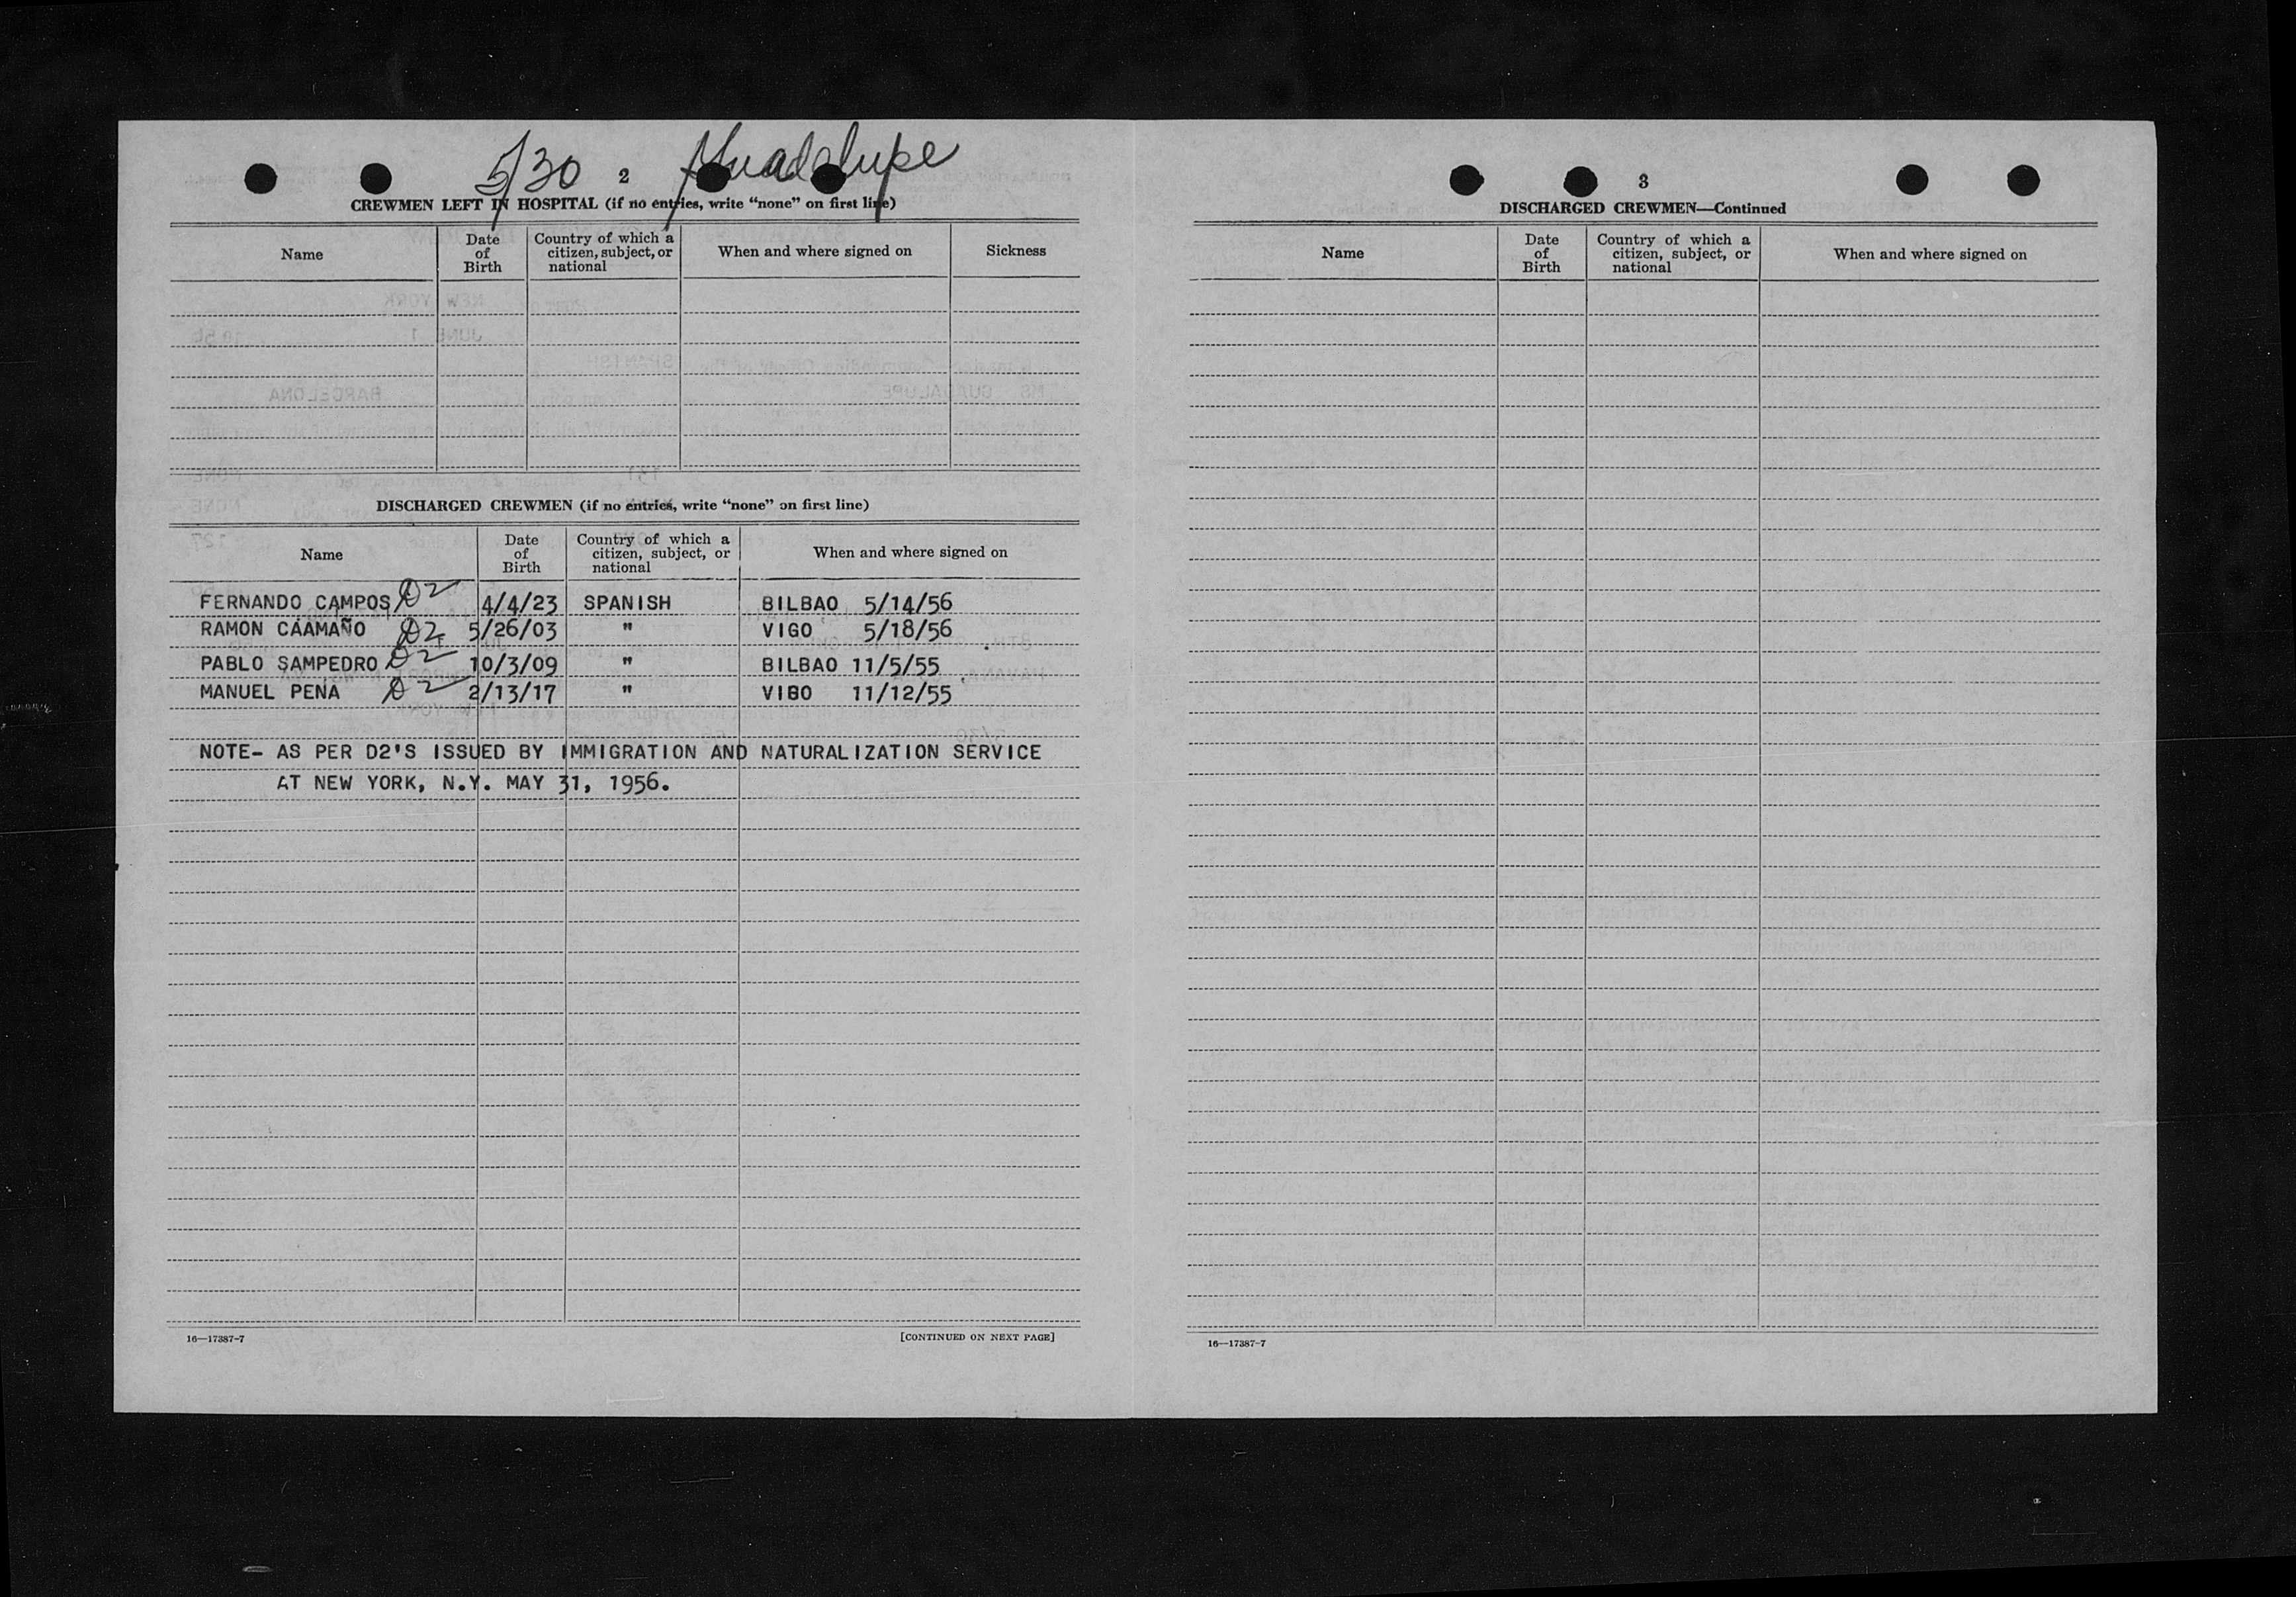 5/30 2 Guadalupe
CREWMEN LEFT IN HOSPITAL (if no entries, write “none” on first line)
Name Date of Birth Country of which a citizen, subject, or national When and where signed on Sickness
DISCHARGED CREWMEN (if no entries, write “none” on first line)
Name Date of Birth Country of which a citizen, subject, or national When and where signed on
FERNANDO CAMPOS D2 4/4/23 SPANISH BILBAO 5/14/56
RAMON CAAMAÑO D2 5/26/03 " VIGO 5/18/56
PABLO SAMPEDRO D2 10/3/09 " BILBAO 11/5/55
MANUEL PENA D2 2/13/17 " VIBO 11/12/55
NOTE- AS PER D2'S ISSUED BY IMMIGRATION AND NATURALIZATION SERVICE
AT NEW YORK, N.Y. MAY 31, 1956.
16—17387-7 [CONTINUED ON NEXT PAGE]
3
DISCHARGED CREWMEN—Continued
Name Date of Birth Country of which a citizen, subject, or national When and where signed on
16—17387-7